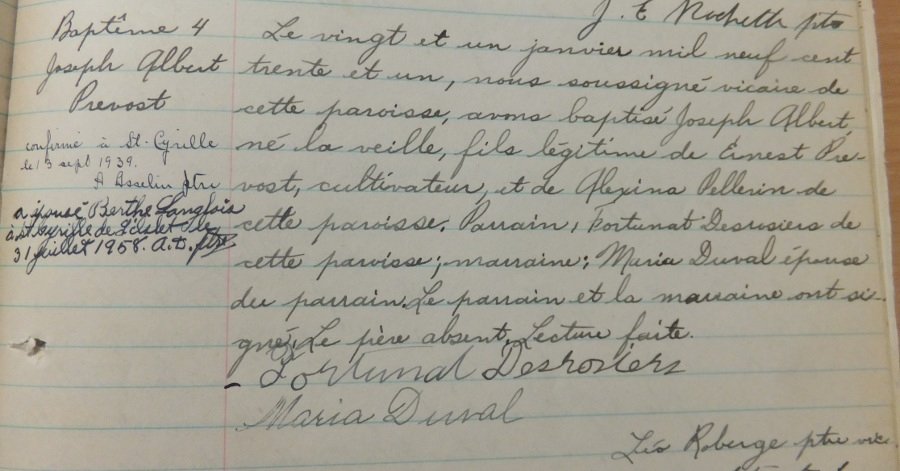 J. E Rochette ptre
Baptême 4
Joseph Albert
Prevost
confirmé à St-Cyrille
le 13 sept 1939.
A Asselin ptre
a épousé Berthe Langlois
à St Cyrille de L'Islet le
31 juillet 1958. A.D. ptre
Le vingt et un janvier mil neuf cent
trente et un, nous soussigné vicaire de
cette paroisse, avons baptisé Joseph Albert,
né la veille, fils légitime de Ernest Pre-
vost, cultivateur, et de Alexina Pellerin de
cette paroisse. Parrain, Fortunat Desrosiers de
cette paroisse; marraine: Maria Duval épouse
du parrain. Le parrain et la marraine ont si-
gné. Le père absent. Lecture faite.
Fortunat Desrosiers
Maria Duval
Léo Roberge ptre vic.